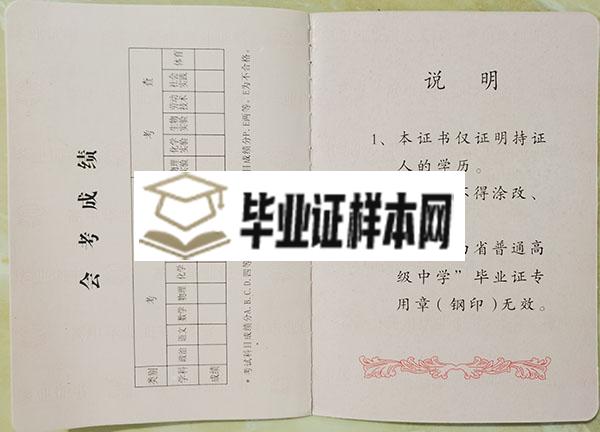 会考成绩
类别 考 考 查
学科 政治 语文 数学 物理 化学 物理实验 化学实验 生物实验 劳动技术 社会实践 体育
成绩
*考试科目成绩分A、B、C、D、四等
目成绩分P、E两等。E为不合格。
毕业证样本网
说 明
1、本证书仅证明持证
人的学历。
不得涂改、
省普通高
级中学”毕业证专
用章(钢印)无效。